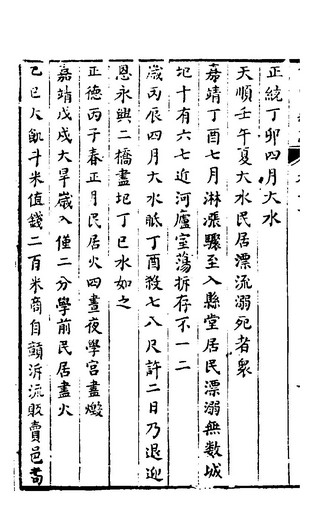 正統丁卯四月大水
天順壬午夏大水民居漂流溺死者衆
嘉靖丁酉七月淋漲驟至入縣堂居民漂溺無數城
圮十有六七近河廬室蕩拆存不一二
歲丙辰四月大水眂丁酉殺七八尺許二日乃退迎
恩永興二橋盡圮丁巳水如之
正德丙子春正月民居火四晝夜學宮盡燬
嘉靖戊戌大旱歲入僅二分學前民居盡火
己巳大飢斗米值錢二百米商自顛泝流敗賣邑